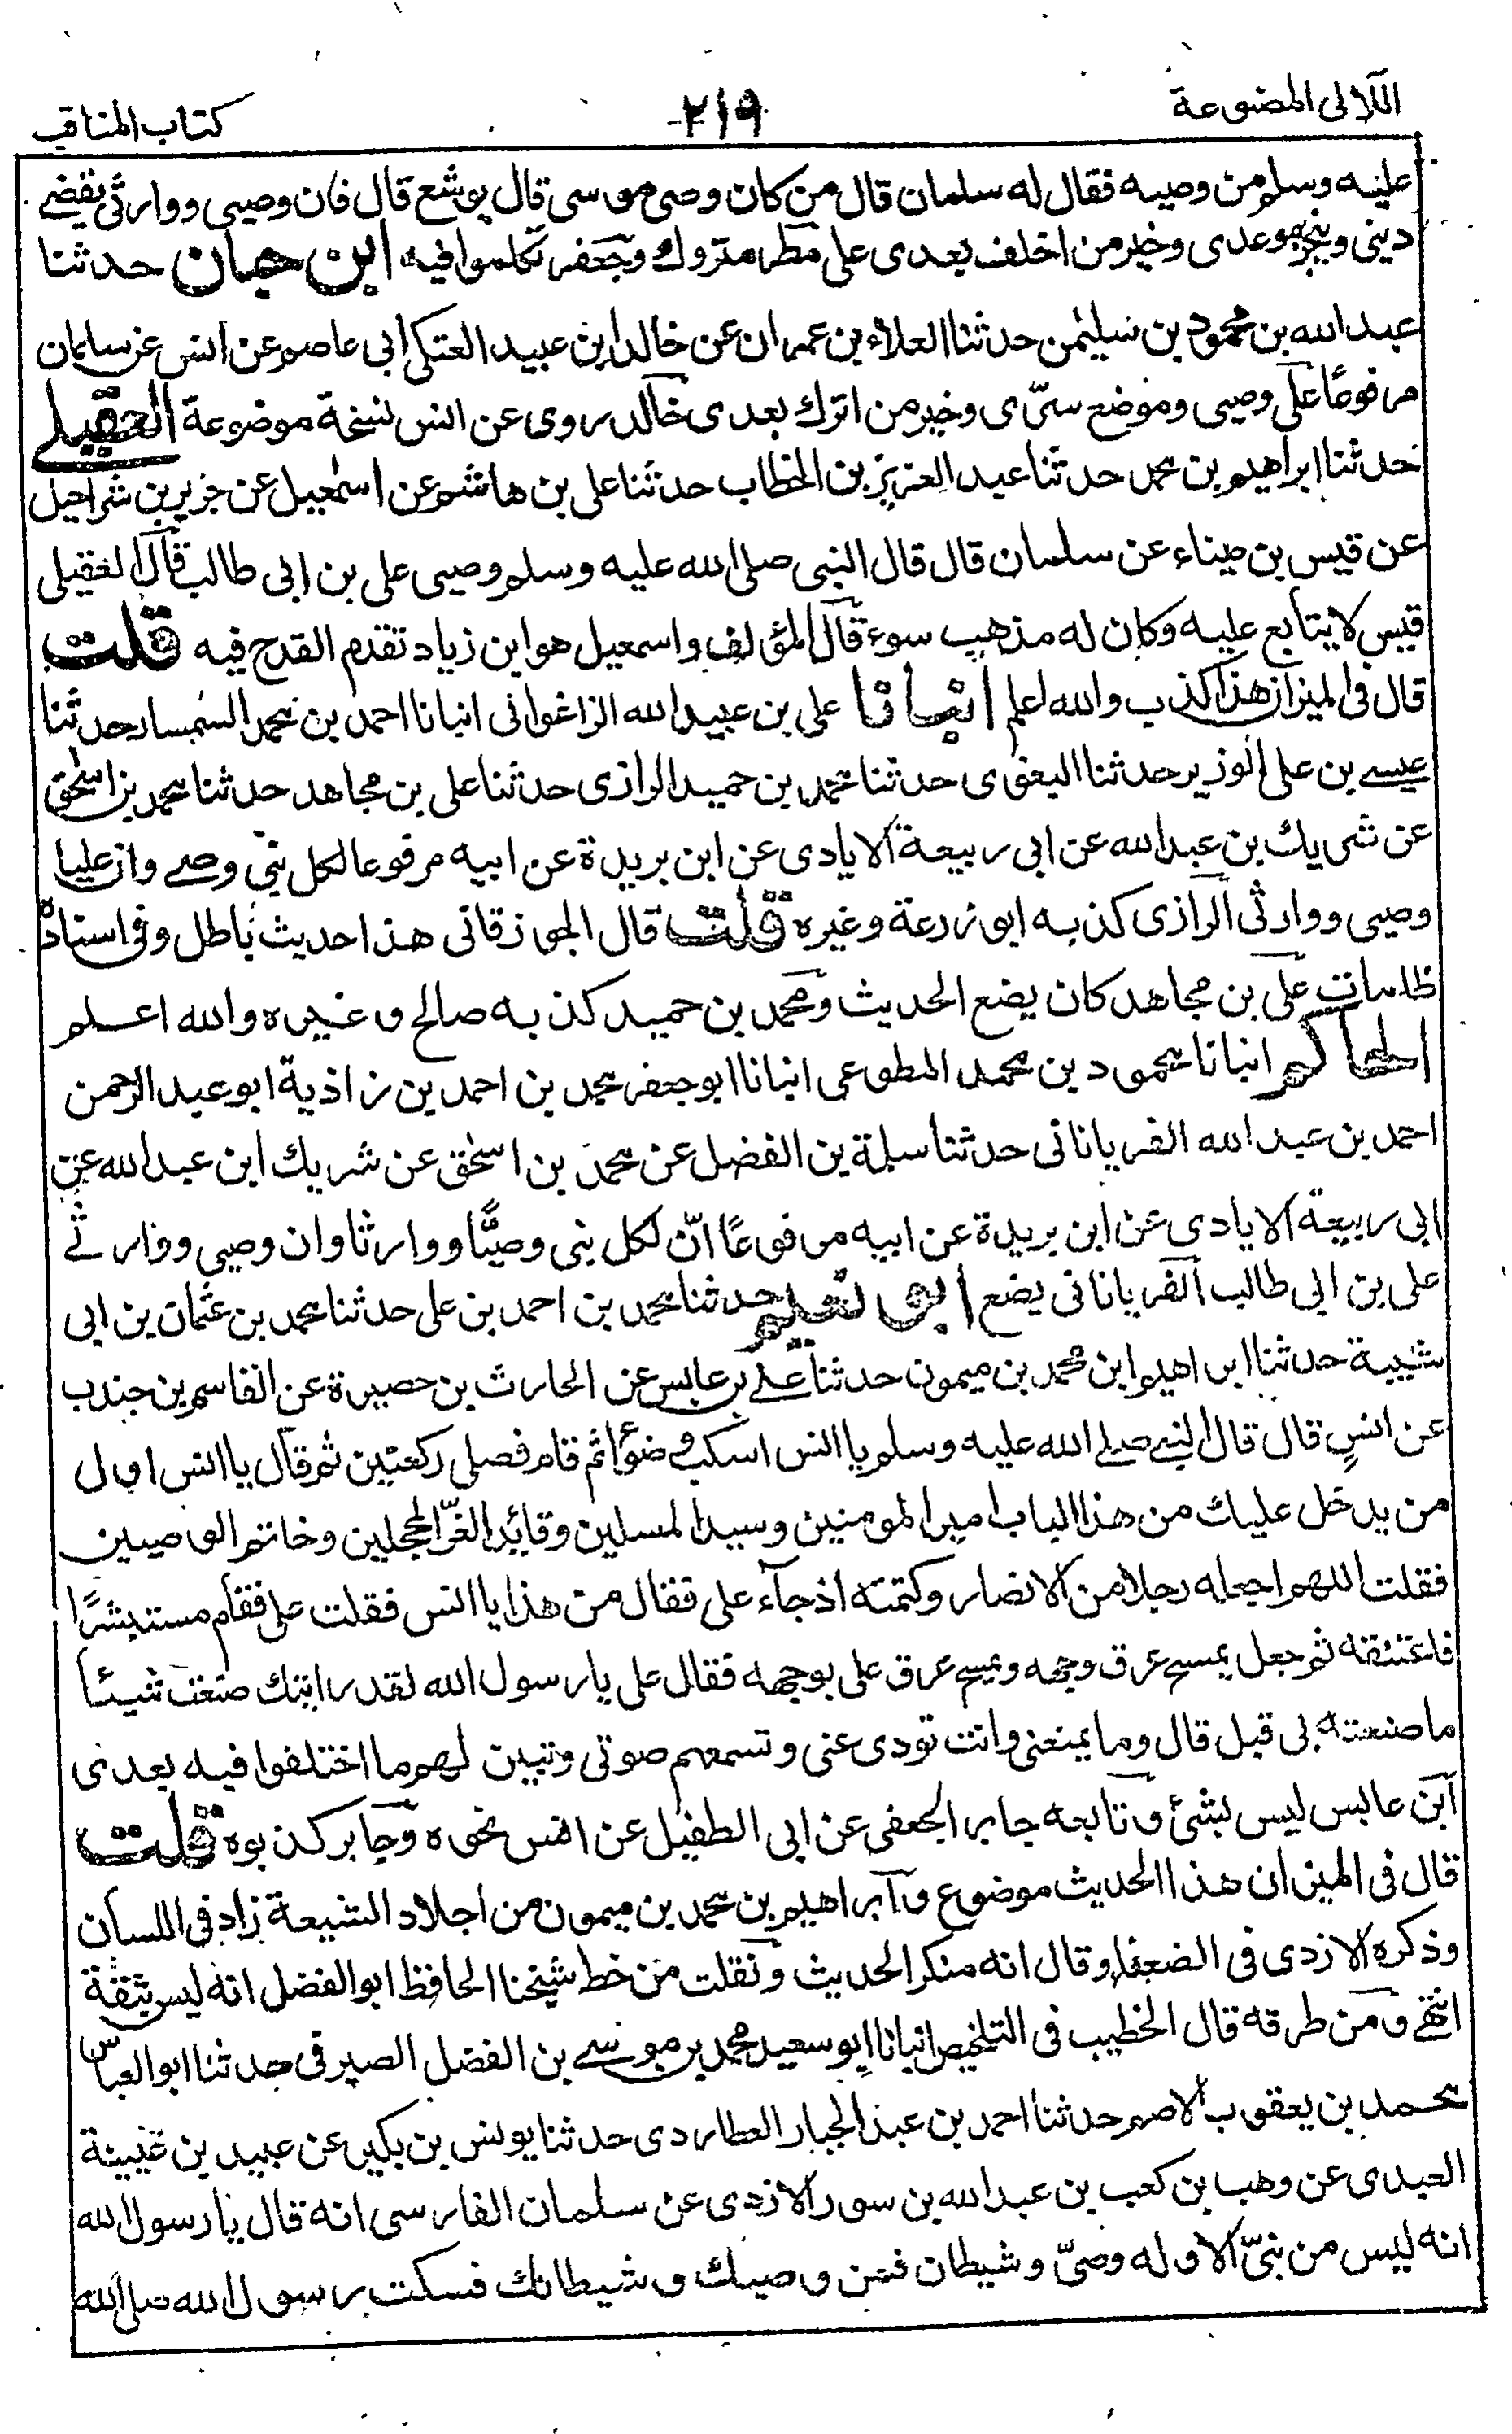 اللآلى المصنوعة
٢١٩
كتاب المناقب
عليه وسلم من وصيه فقال له سلمان قال من كان وصى موسى قال يوشع قال فان وصيى ووارثى يقضے
دينى وينجز موعدى وخير من اخلف بعدى على مطر متروك وجعفر تكلموا فيه ابن حبان حدثنا
عبد الله بن محمود بن سليمن حدثنا العلاء بن عمران عن خالد ابن عبيد العتكى ابى عاصم عن انس عن سلمان
مرفوعًا على وصيى وموضع سرّى وخير من اترك بعدى خالد روى عن انس نسخة موضوعة العقيلے
حدثنا ابراهيم بن محمد حدثنا عبد العزيز بن الخطاب حدثنا على بن هاشم عن اسمعيل عن جرير بن شراحيل
عن قيس بن ميناء عن سلمان قال قال النبى صلى الله عليه وسلم وصيى على بن ابى طالب قال العقيلى
قيس لا يتابع عليه وكان له مذهب سوء قال المؤلف واسمعيل هو ابن زياد تقدم القدح فيه قلت
قال فى الميزان هذا كذب والله اعلم انبانا على بن عبيد الله الزاغوانى انبانا احمد بن محمد السمسار حدثنا
عيسے بن على الوزير حدثنا البغوى حدثنا محمد بن حميد الرازى حدثنا على بن مجاهد حدثنا محمد بن اسحق
عن شريك بن عبد الله عن ابى ربيعة الايادى عن ابن بريدة عن ابيه مرفوعا لكل نبى وصے وان عليا
وصيى ووارثى الرازى كذبه ابو زرعة وغيره قلت قال الجوزقانى هذا حديث باطل وفى اسناده
ظلمات على بن مجاهد كان يضع الحديث ومحمد بن حميد كذبه صالح وغيره والله اعلم
الحاكم انبانا محمود بن محمد المطوعى انبانا ابو جعفر محمد بن احمد بن زاذية ابو عبد الرحمن
احمد بن عبد الله الفريانانى حدثنا سلمة بن الفضل عن محمد بن اسحق عن شريك ابن عبد الله عن
ابى ربيعة الايادى عن ابن بريدة عن ابيه مرفوعًا انّ لكل نبى وصيًّا ووارثا وان وصيى ووارثے
على بن ابى طالب الفريانانى يضع ابو نعيم حدثنا محمد بن احمد بن على حدثنا محمد بن عثمان بن ابى
شيبة حدثنا ابراهيم ابن محمد بن ميمون حدثنا علے بن عابس عن الحارث بن حصيرة عن القاسم بن جندب
عن انس قال قال النبے صلے الله عليه وسلم يا انس اسكب لى وضوءًا ثم قام فصلى ركعتين ثم قال يا انس اول
من يدخل عليك من هذا الباب امير المومنين وسيد المسلين وقائد الغرّ المحجلين وخاتم الوصيين
فقلت اللهم اجعله رجلا من الانصار وكتمته اذ جاء على فقال من هذا يا انس فقلت على فقام مستبشرًا
فاعتنقه ثم جعل يمسح عرق وجهه ويمسح عرق على بوجهه فقال على يا رسول الله لقد رايتك صنعت شيئا
ما صنعته بى قبل قال وما يمنعنى وانت تودى عنى وتسمعهم صوتى وتبين لهم ما اختلفوا فيه بعدى
ابن عابس ليس بشئ وتابعه جابر الجعفى عن ابى الطفيل عن انس نحوه وجابر كذبوه قلت
قال فى الميزان هذا الحديث موضوع وابراهيم بن محمد بن ميمون من اجلاد الشيعة زاد فى اللسان
وذكره الازدى فى الضعفاء وقال انه منكر الحديث ونقلت من خط شيخنا الحافظ ابو الفضل انه ليس بثقة
انتهے ومن طرقه قال الخطيب فى التلخيص انبانا ابو سعيد محمد بن موسے بن الفضل الصيرفى حدثنا ابو العباس
محمد بن يعقوب الاصم حدثنا احمد بن عبد الجبار العطاردى حدثنا يونس بن بكير عن عبيد بن عيينة
العبدى عن وهب بن كعب بن عبد الله بن سور الازدى عن سلمان الفارسى انه قال يا رسول الله
انه ليس من نبىّ الا وله وصىّ وشيطان فمن وصيك وشيطانك فسكت رسول الله صلى الله